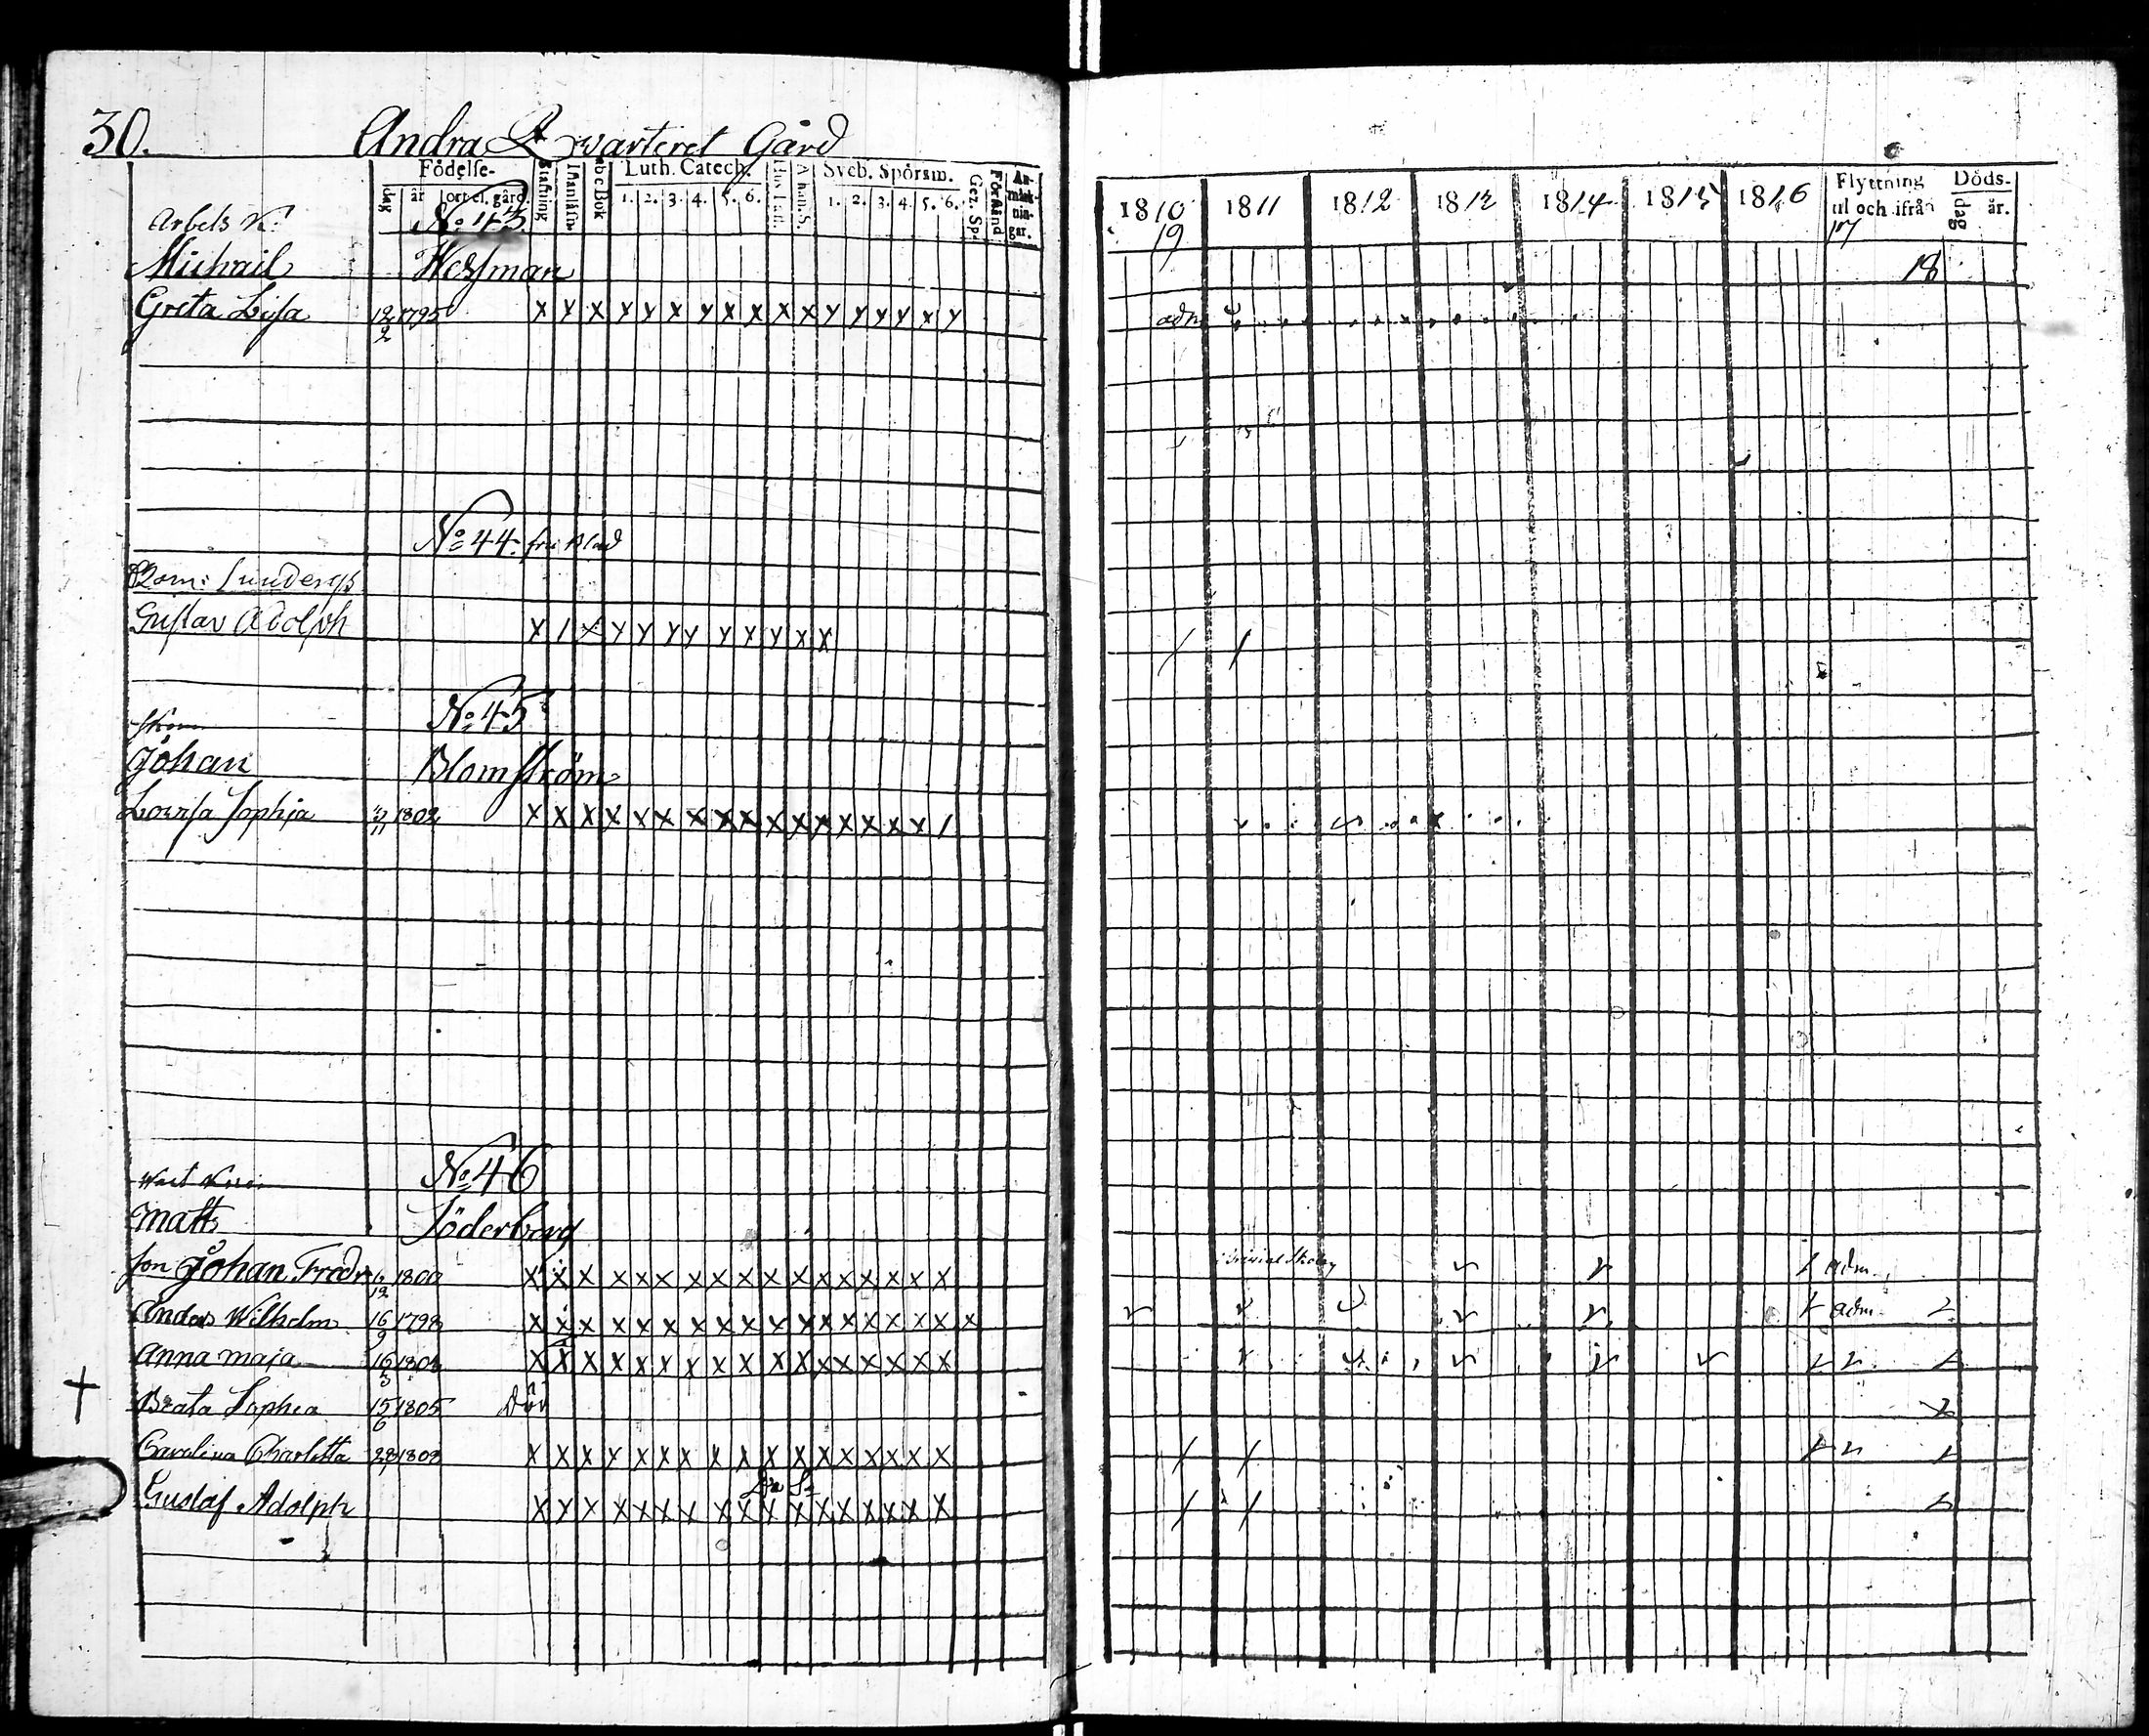 30. Andra Qvarteret Gård
Födelse- Stafning Innanläsn. Abc Bok Luth. Catech. Hus Taf. Athan. S. Sveb. Spörsm. Gez. Sp. Förstånd An-märk-nin-gar.
dag år ort el. gård. 1. 2. 3. 4. 5. 6. 1. 2. 3. 4. 5. 6.
1810 1811 1812 1813 1814 1815 1816 Flyttning til och ifrån Döds- dag år.
19 17
Arbets K. No 43
Michail Wessman 18
Greta Lisa 12/2 1795 x x x x x x x x x x x x x x x x x adm
No 44.
Gustav Adolph x / x x x x x x x x x x / /
No 45
Johan Blomström
Lovisa Sophia 3/11 1802 x x x x x x x x x x x x x x x x /
No 46
Matts Söderberg
son Johan Fredr 1/12 1800 x x x x x x x x x x x x x x x x x Trivial Skolan adm.
Anders Wilhelm 16/9 1798 x x x x x x x x x x x x x x x x x x adm.
Anna Maja 16/3 1803 x x x x x x x x x x x x x x x x x
† Beata Sophia 15/6 1805 Död
Carolina Charlotta 28/1 1808 x x x x x x x x x x x x x x x x x / /
Gustaf Adolph x x x x x x x x x x x x x x x x x / /